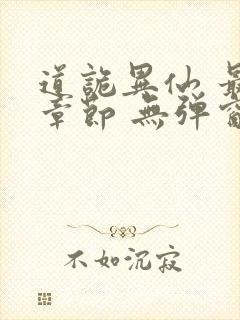 道詭異仙 最
章節 無彈窗
不如沉寂